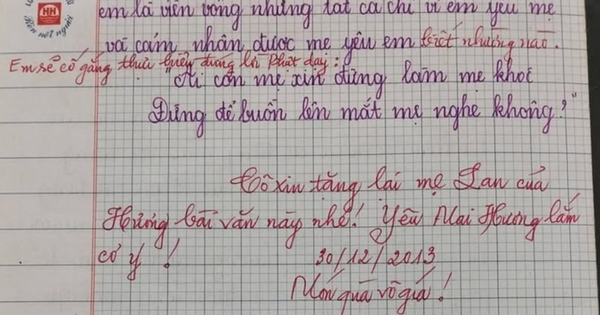 HH
Nét người
em là viển vông nhưng tất cả chỉ vì em yêu mẹ
và cảm nhận được mẹ yêu em biết nhường nào.
Em sẽ cố gắng thực hiện đúng lời Phật dạy:
"Ai còn mẹ xin đừng làm mẹ khóc
Đừng để buồn lên mắt mẹ nghe không?"
Cô xin tặng lại mẹ Lan của
Hương bài văn này nhé! Yêu Mai Hương lắm
cơ ý!
30/12/2013
Món quà vô giá!